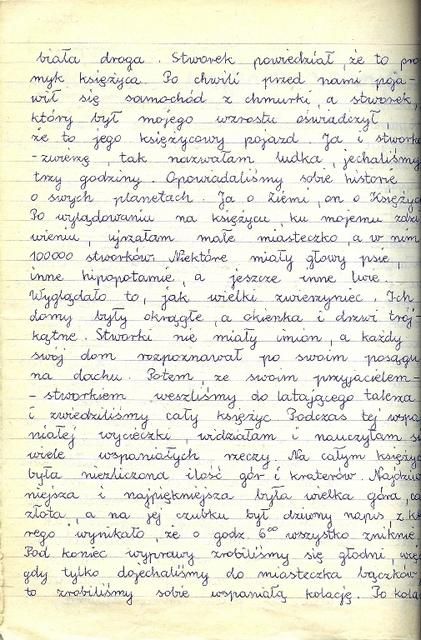 biała droga. Stworek powiedział, że to pro
myk księżyca. Po chwili przed nami poja-
wił się samochód z chmurki, a stworek,
który był mojego wzrostu oświadczył,
że to jego księżycowy pojazd. Ja i stworko
-zwierzę, tak nazwałam ludka, jechaliśmy
trzy godziny. Opowiadaliśmy sobie historie
o swych planetach. Ja o Ziemi, on o Księżyc
Po wylądowaniu na księżycu, ku mojemu zdzi
wieniu, ujrzałam małe miasteczko, a w nim
100000 stworków. Niektóre miały głowy psie,
inne hipopotamie, a jeszcze inne lwie.
Wyglądało to, jak wielki zwierzyniec. Ich
domy były okrągłe, a okienka i drzwi trój-
kątne. Stworki nie miały imion, a każdy
swój dom rozpoznawał po swoim posągu
na dachu. Potem ze swoim przyjacielem-
- stworkiem weszliśmy do latającego talerza
i zwiedziliśmy cały księżyc. Podczas tej wspa
niałej wycieczki, widziałam i nauczyłam si
wiele wspaniałych rzeczy. Na całym księżyc
była niezliczona ilość gór i kraterów. Najdziw
niejsza i najpiękniejsza była wielka góra, ca
złota, a na jej czubku był dziwny napis, z kt
rego wynikało, że o godz. 6⁰⁰ wszystko zniknie.
Pod koniec wyprawy zrobiliśmy się głodni, więc
gdy tylko dojechaliśmy do miasteczka bączków,
to zrobiliśmy sobie wspaniałą kolację. Po kola